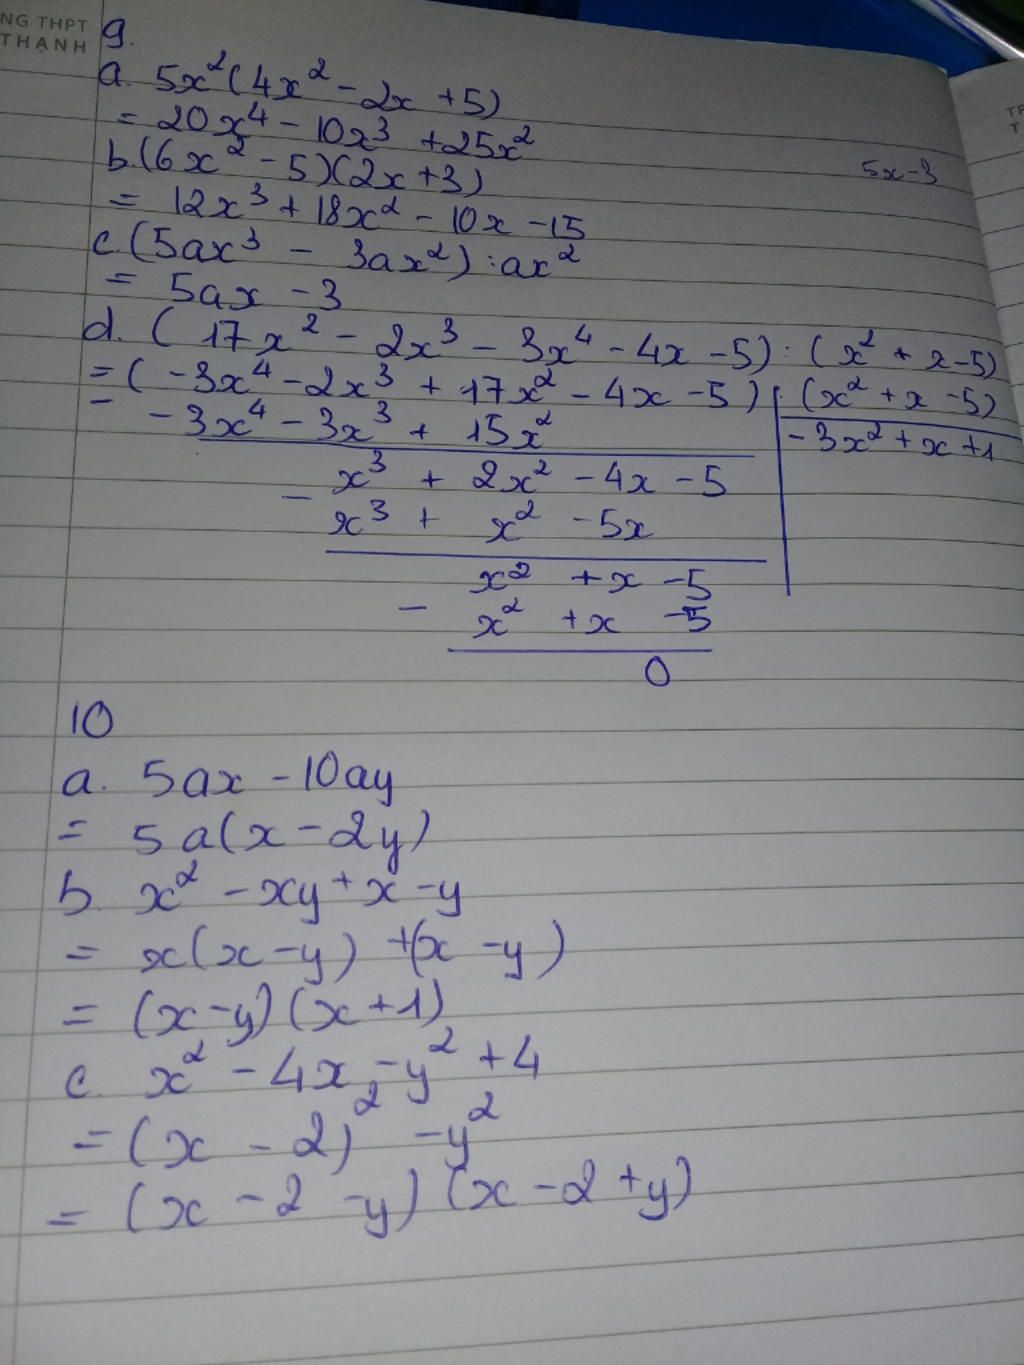 NG THPT
THẠNH
9.
a. 5x²(4x² - 2x + 5)
= 20x⁴ - 10x³ + 25x²
b. (6x² - 5)(2x + 3)
5x - 3
= 12x³ + 18x² - 10x - 15
c. (5ax³ - 3ax²) : ax²
= 5ax - 3
d. (17x² - 2x³ - 3x⁴ - 4x - 5) : (x² + x - 5)
= (-3x⁴ - 2x³ + 17x² - 4x - 5) : (x² + x - 5)
- -3x⁴ - 3x³ + 15x²
-3x² + x + 1
x³ + 2x² - 4x - 5
- x³ + x² - 5x
x² + x - 5
- x² + x - 5
0
10
a. 5ax - 10ay
= 5a(x - 2y)
b. x² - xy + x - y
= x(x - y) + (x - y)
= (x - y)(x + 1)
c. x² - 4x - y² + 4
= (x - 2)² - y²
= (x - 2 - y)(x - 2 + y)